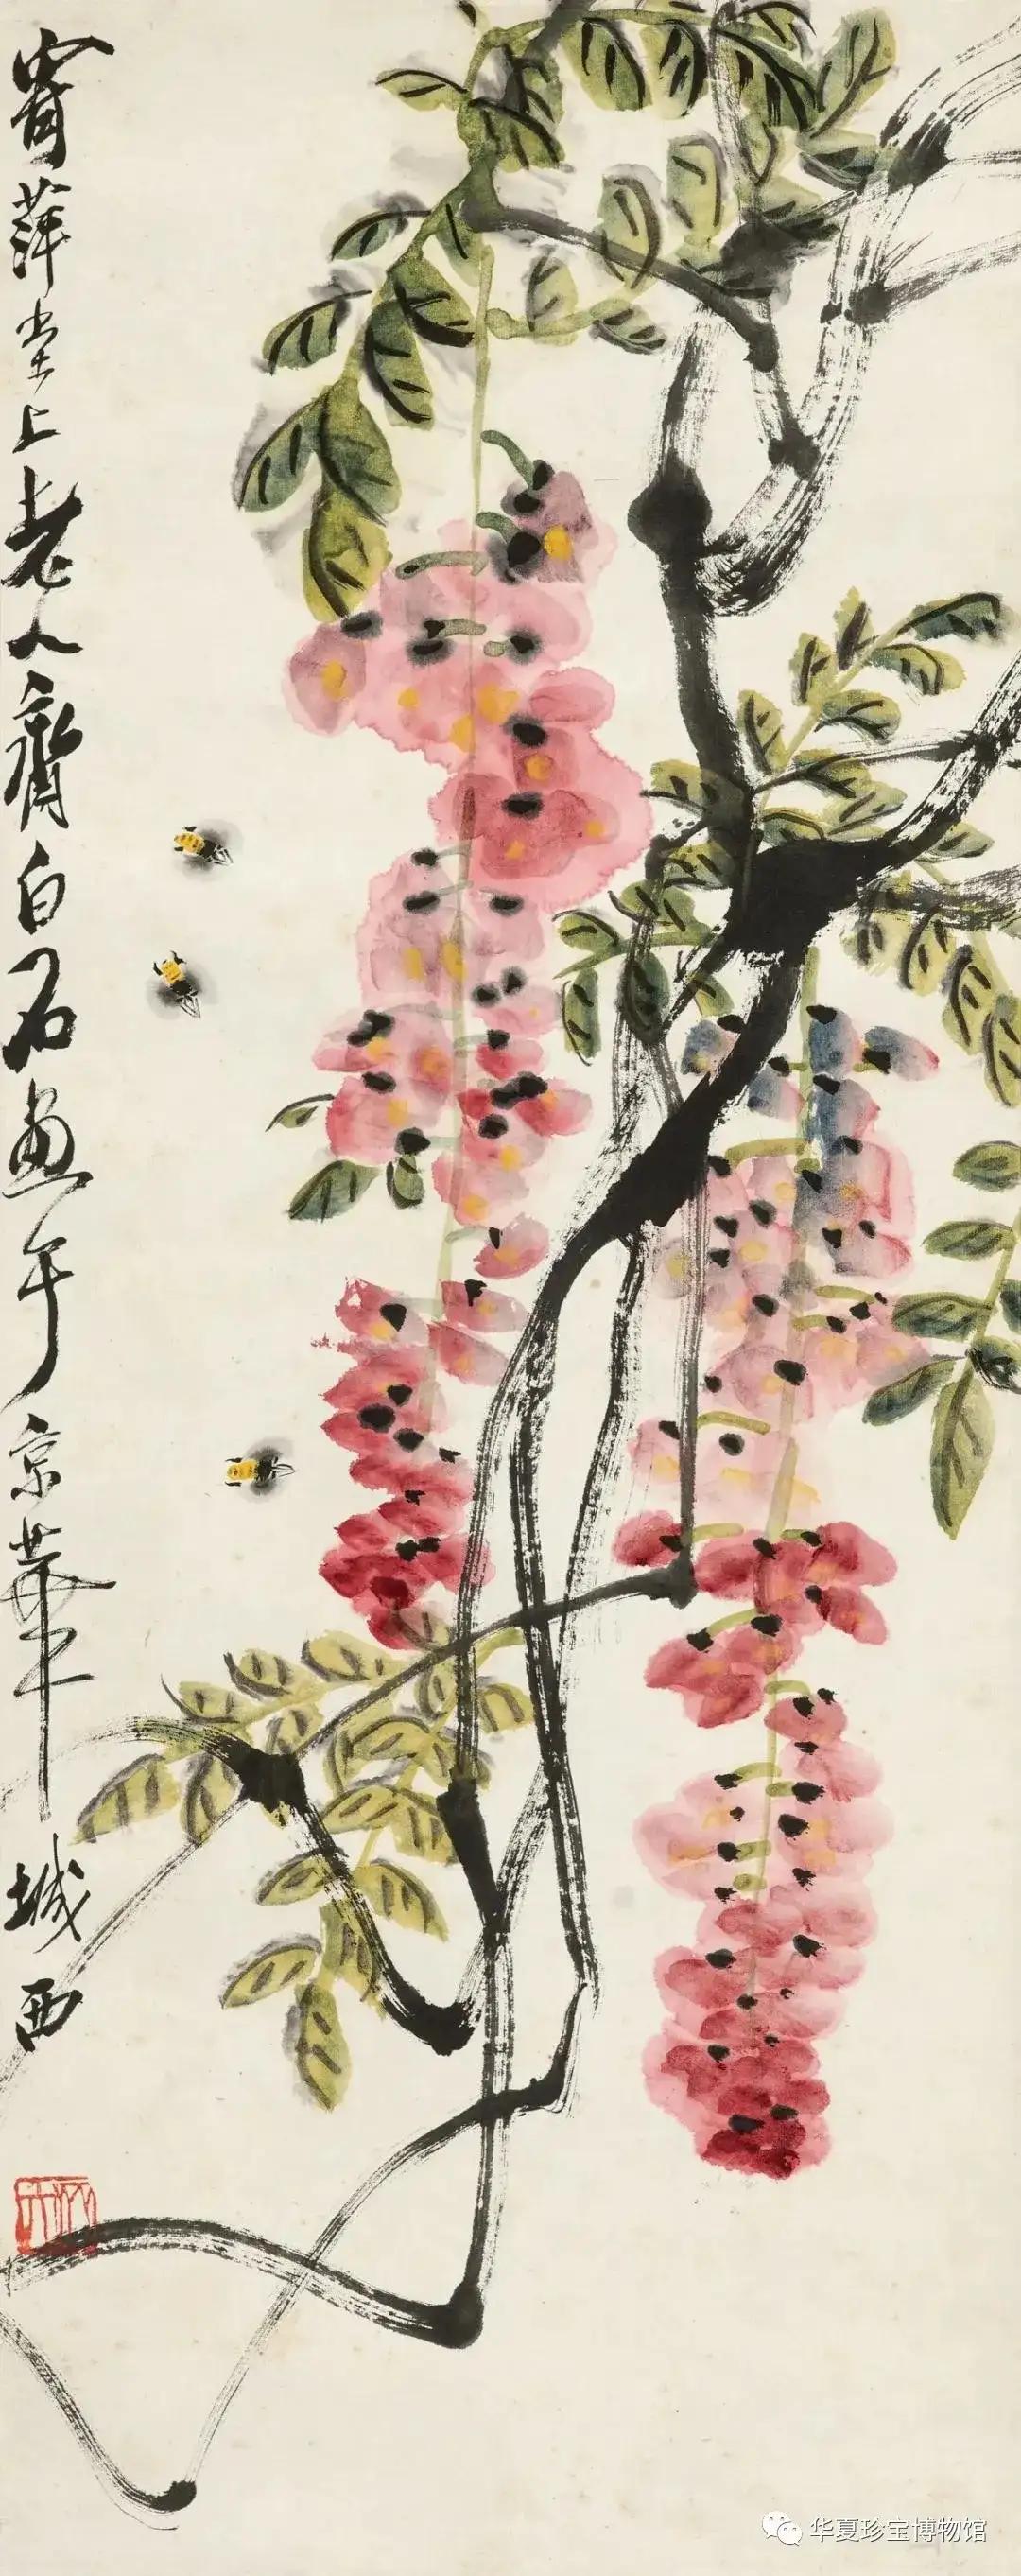 寄萍堂上老人齊白石畫于京華城西
华夏珍宝博物馆